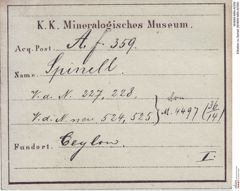 K. K. Mineralogisches Museum.
Acq. Post. A. f. 359.
Name. Spinell.
V. d. N. 227, 228.
V. d. N. neu 524, 525 } M. 4497 (36/14)
Fundort. Ceylon
I.